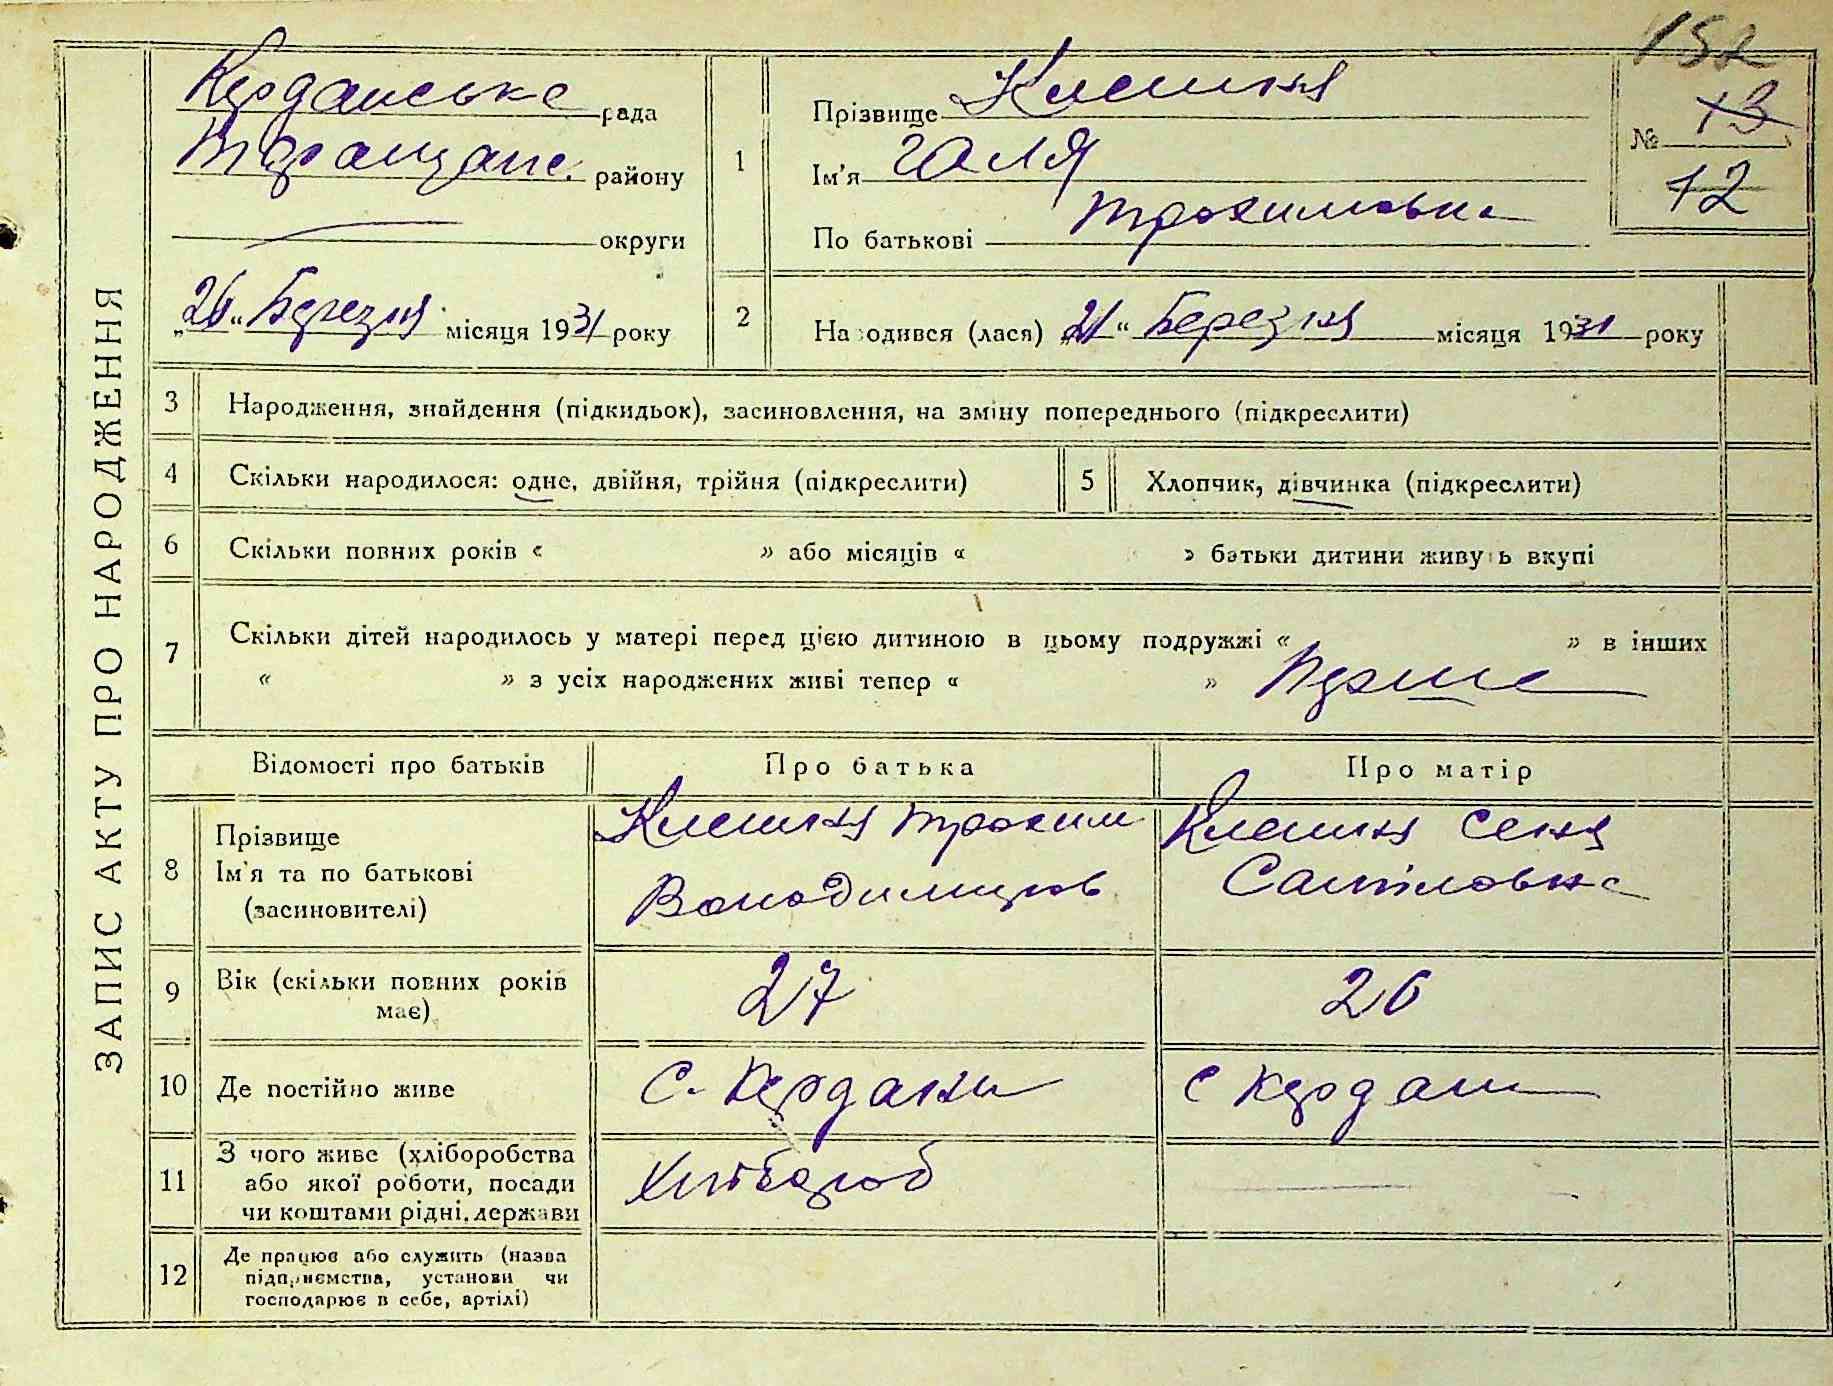 152
Керданське рада
Таращанс. району
округи
„26“ Березня місяця 1931 року
1
Прізвище Клешня
Ім'я Галя
По батькові Трохимовна
№ 13
12
2
Народився (лася) „21“ Березня місяця 1931 року
ЗАПИС АКТУ ПРО НАРОДЖЕННЯ
3 Народження, знайдення (підкидьок), засиновлення, на зміну попереднього (підкреслити)
4 Скільки народилося: одне, двійня, трійня (підкреслити) 5 Хлопчик, дівчинка (підкреслити)
6 Скільки повних років « » або місяців « » батьки дитини живуть вкупі
7 Скільки дітей народилось у матері перед цією дитиною в цьому подружжі « » в інших
« » з усіх народжених живі тепер « » Перше
Відомості про батьків Про батька Про матір
8 Прізвище
Ім'я та по батькові
(засиновителі)
Клешня Трохим
Володимиров
Клешня Сеня
9 Вік (скільки повних років
має)
27 26
10 Де постійно живе с. Кердани с Кердани
11 З чого живе (хліборобства
або якої роботи, посади
чи коштами рідні, держави
Хлібороб
12 Де працює або служить (назва
підприємства, установи чи
господарює в себе, артілі)